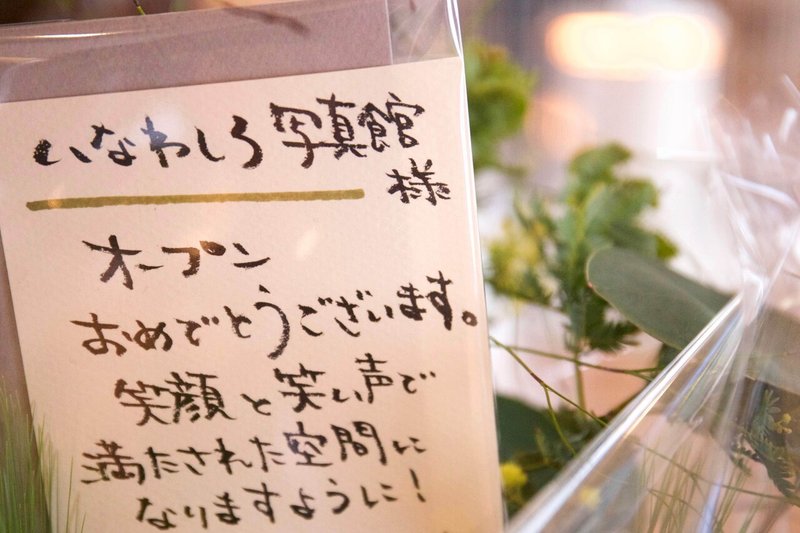 いなわしろ写真館
様
オープン
おめでとうございます。
笑顔と笑い声で
満たされた空間に
なりますように!